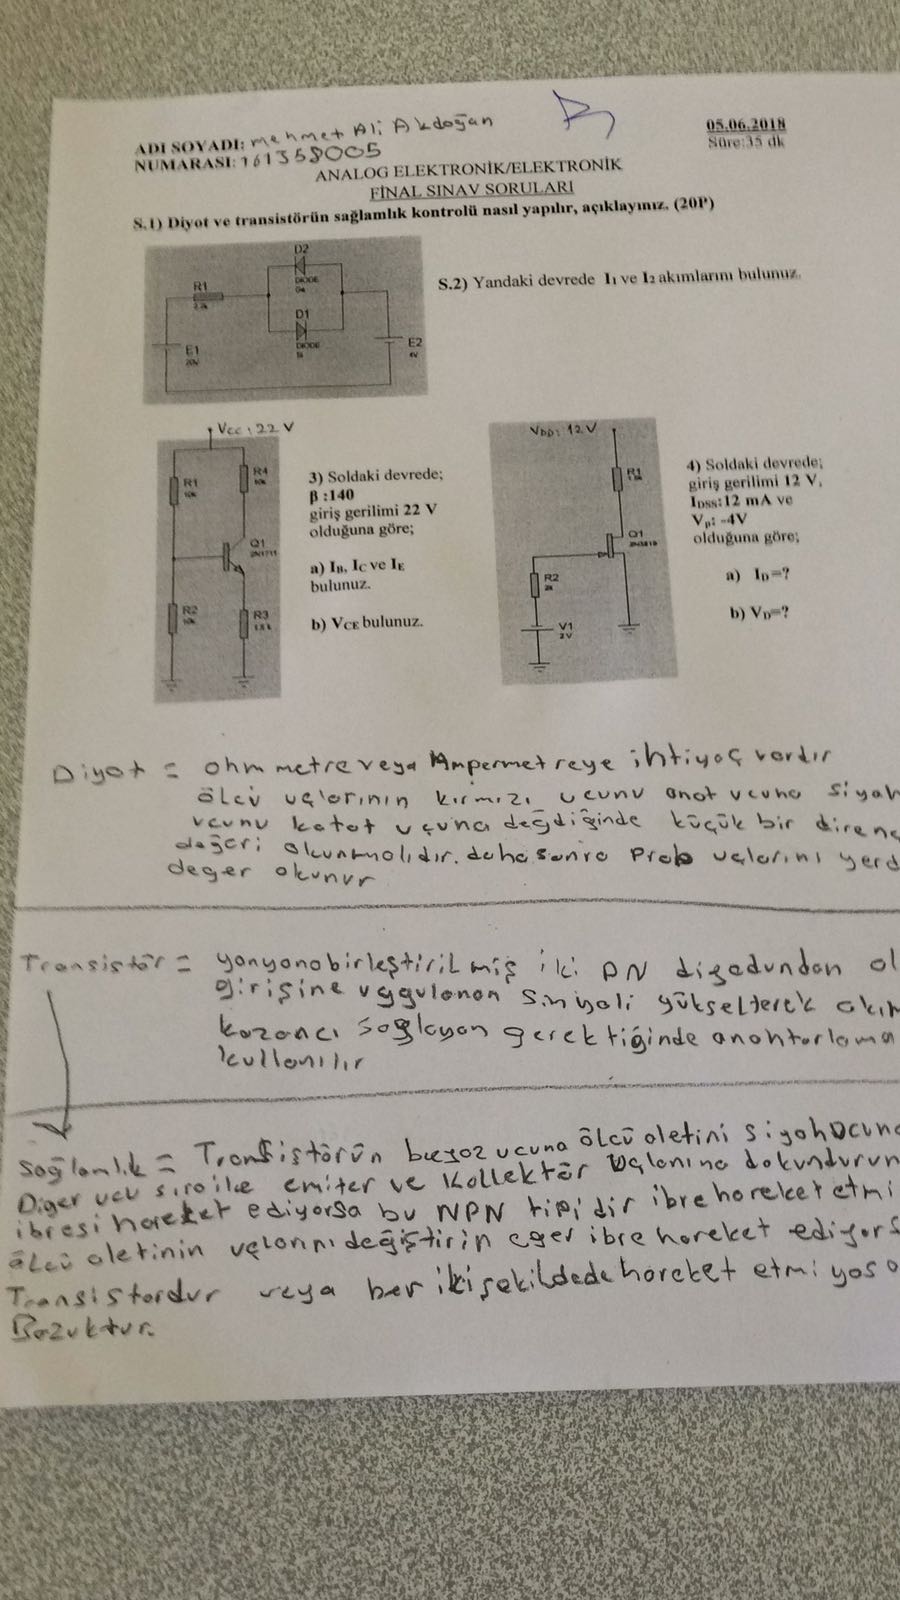 ADI SOYADI: mehmet Ali Akdoğan
NUMARASI: 161358005
05.06.2018
Süre:35 dk
ANALOG ELEKTRONİK/ELEKTRONİK
FİNAL SINAV SORULARI
S.1) Diyot ve transistörün sağlamlık kontrolü nasıl yapılır, açıklayınız. (20P)
D2
DIODE
Ge
R1
2.2k
D1
DIODE
Si
E1
20V
E2
4V
S.2) Yandaki devrede I1 ve I2 akımlarını bulunuz.
Vcc : 22 V
R1
10k
R4
10k
Q1
2N1711
R2
10k
R3
1.5 k
3) Soldaki devrede;
β :140
giriş gerilimi 22 V
olduğuna göre;
a) IB, IC ve IE
bulunuz.
b) VCE bulunuz.
VDD: 12V
R1
Q1
2N3819
R2
2k
V1
2V
4) Soldaki devrede;
giriş gerilimi 12 V,
IDSS:12 mA ve
Vp: -4V
olduğuna göre;
a) ID=?
b) VD=?
Diyot = ohm metre veya Ampermetreye ihtiyaç vardır
ölcü uçlarının kırmızı ucunu anot ucuna siyah
ucunu katot ucuna değdiğinde küçük bir diren
değeri okunmalıdır. daha sonra Prob uçlarını yerd
değer okunur
Transistör = yanyana birleştirilmiş iki PN diyadundan ol
girişine uygulanan sinyali yükselterek akım
kazancı sağlayan gerektiğinde anahtarlama
kullanılır
Sağlamlık = Transistörün beyaz ucuna ölcü aletini siyah ucun
Diğer ucu sıra ile emiter ve Kollektör uçlarına dokundurun
ibresi hareket ediyorsa bu NPN tipidir ibre hareket etmi
ölcü aletinin uçlarını değiştirin eger ibre hareket ediyors
Transistordur veya her iki şekildede hareket etmiyosa
Bozuktur.